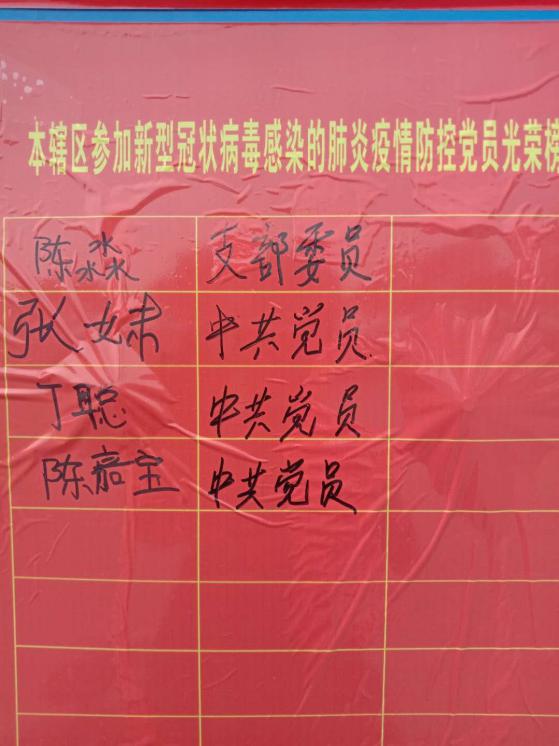 本辖区参加新型冠状病毒感染的肺炎疫情防控党员光荣榜
陈淼 支部委员
张妹 中共党员
丁聪 中共党员
陈嘉宝 中共党员